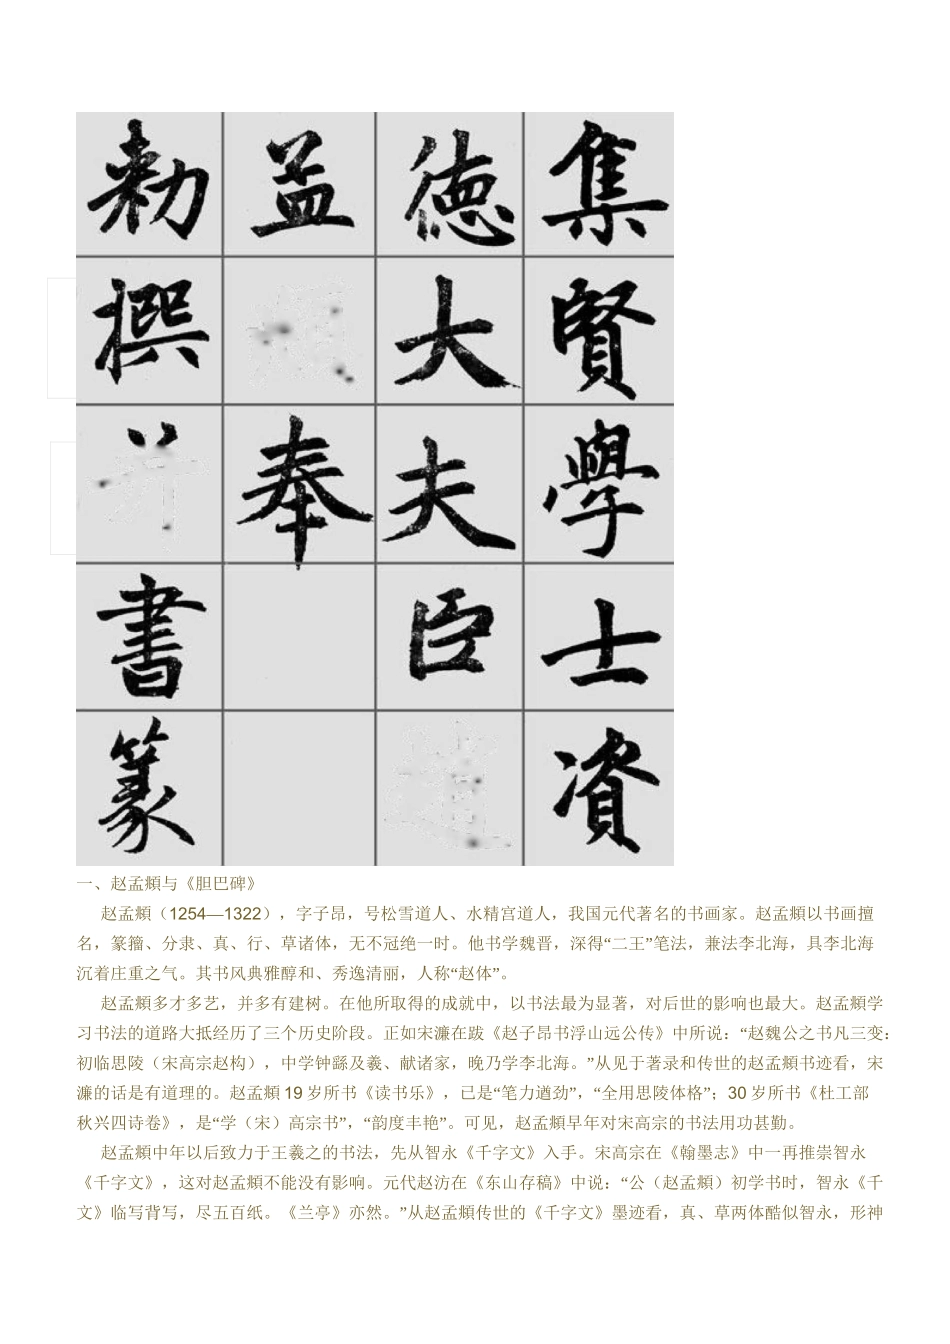 集賢學士資
德大夫臣
孟奉
勅撰并書篆
一、赵孟頫与《胆巴碑》
赵孟頫（1254—1322），字子昂，号松雪道人、水精宫道人，我国元代著名的书画家。赵孟頫以书画擅
名，篆籀、分隶、真、行、草诸体，无不冠绝一时。他书学魏晋，深得“二王”笔法，兼法李北海，具李北海
沉着庄重之气。其书风典雅醇和、秀逸清丽，人称“赵体”。
赵孟頫多才多艺，并多有建树。在他所取得的成就中，以书法最为显著，对后世的影响也最大。赵孟頫学
习书法的道路大抵经历了三个历史阶段。正如宋濂在跋《赵子昂书浮山远公传》中所说：“赵魏公之书凡三变：
初临思陵（宋高宗赵构），中学钟繇及羲、献诸家，晚乃学李北海。”从见于著录和传世的赵孟頫书迹看，宋
濂的话是有道理的。赵孟頫 19 岁所书《读书乐》，已是“笔力遒劲”，“全用思陵体格”；30 岁所书《杜工部
秋兴四诗卷》，是“学（宋）高宗书”，“韵度丰艳”。可见，赵孟頫早年对宋高宗的书法用功甚勤。
赵孟頫中年以后致力于王羲之的书法，先从智永《千字文》入手。宋高宗在《翰墨志》中一再推崇智永
《千字文》，这对赵孟頫不能没有影响。元代赵汸在《东山存稿》中说：“公（赵孟頫）初学书时，智永《千
文》临写背写，尽五百纸。《兰亭》亦然。”从赵孟頫传世的《千字文》墨迹看，真、草两体酷似智永，形神